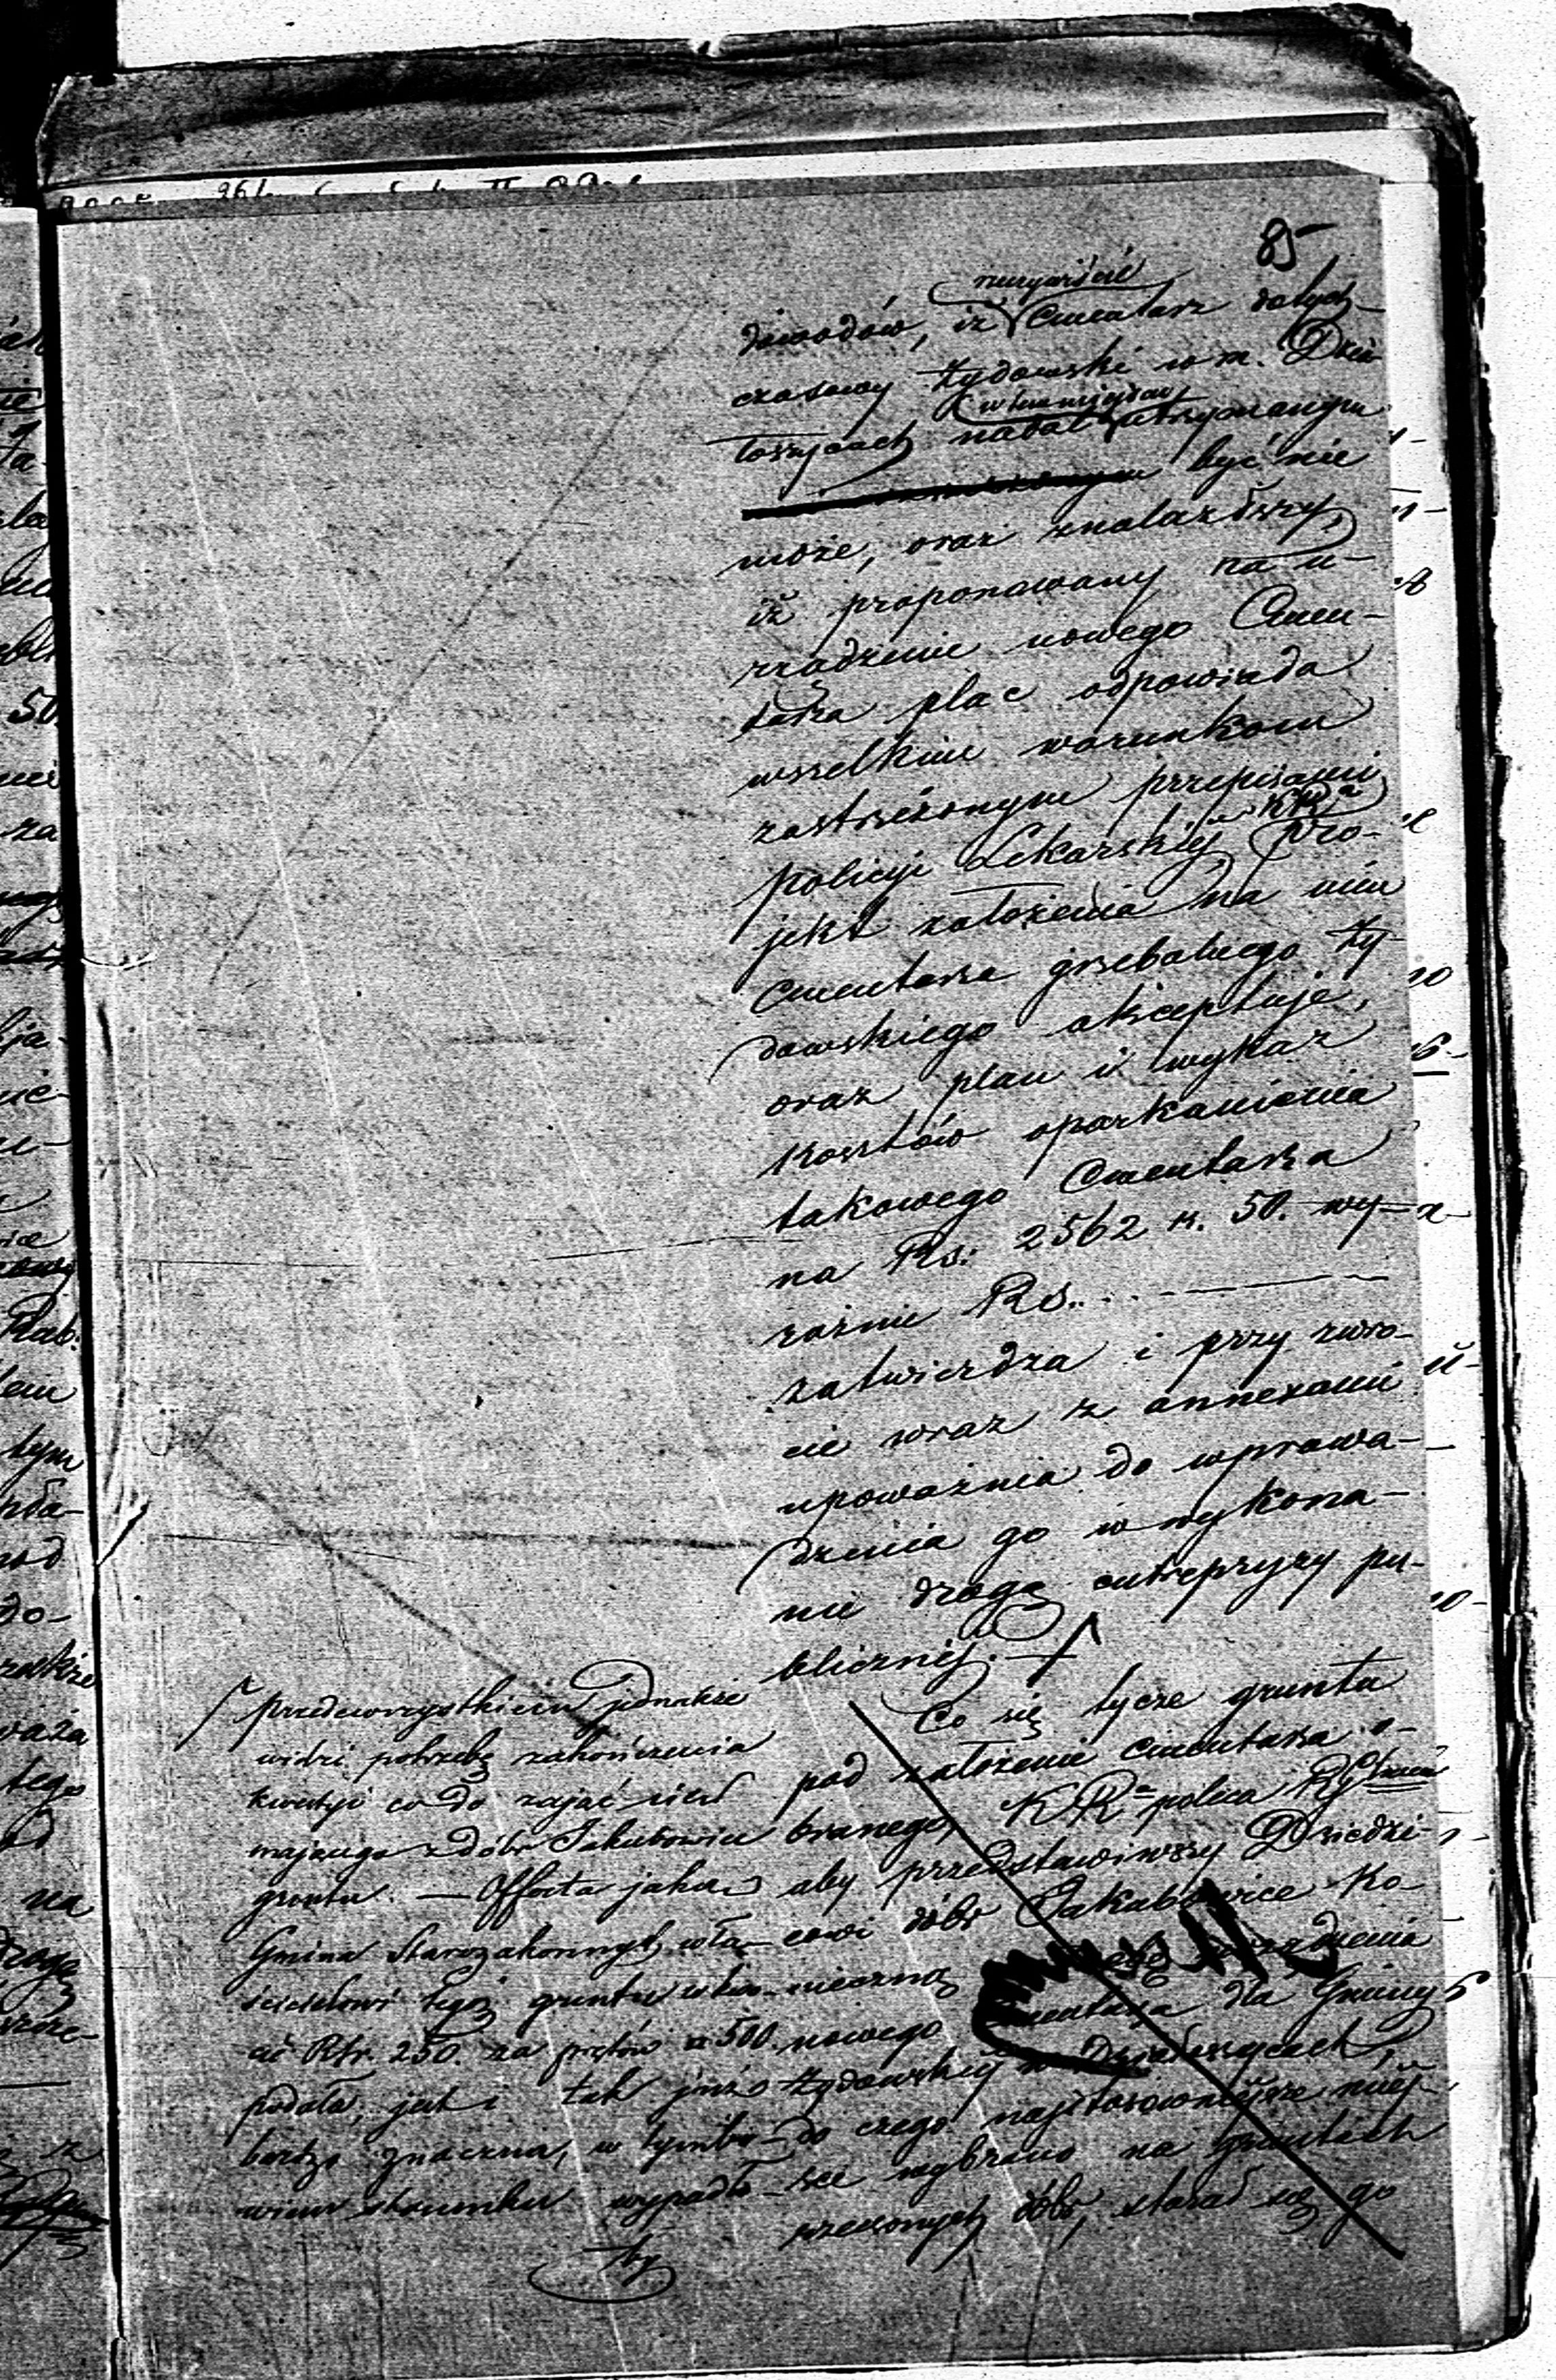 85
rzeczywiście
dowodów, iż Cmentarz dotych-
czasowy żydowski w m. Dzia-
w tem miejscu
łoszycach nadal utrzymanym
być nie
może, oraz znalazłszy,
iż proponowany na u-
rządzenie nowego Cmen-
tarza plac odpowiada
wszelkim warunkom
zastrzeżonym przepisami
policyi Lekarskiej KRa pro-
jekt założenia na nim
Cmentarza grzebalnego ży-
dowskiego akceptuje,
oraz plan i wykaz
kosztów oparkanienia
takowego Cmentarza
na Rs: 2562 k. 50. wy-
raźnie Rs...
zatwierdza i przy zwro-
cie wraz z annexami
upoważnia do wprowa-
dzenia go w wykona-
nie drogą entrepryzy pu-
blicznej.
Co się tycze gruntu
pod założenie cmentarza o-
branego, KRa poleca RgGmu
aby przedstawiwszy Dziedzi-
cowi dóbr Jakubowice ko-
nieczną urządzenia
nowego Cmentarza dla Gminy
żydowskiej w Działoszycach,
do czego najstosowniejsze miej-
sce wybrano na gruntach
rzeczonych dóbr, starał się go
przedewszystkiem jednakże
widzi potrzebę zakończenia
kwestyi co do zająć się
mającego z dóbr Jakubowice
gruntu. — Offerta jaką
Gmina Starozakonnych wła-
ścicielowi tegoż gruntu
Rsr. 250. za prętów 500.
podała, jest i tak już
bardzo znaczna, w tym bo-
wiem stosunku wypadło-
by